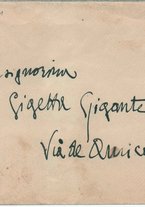 Signorina
Gigetta Gigante
Via de Amicis